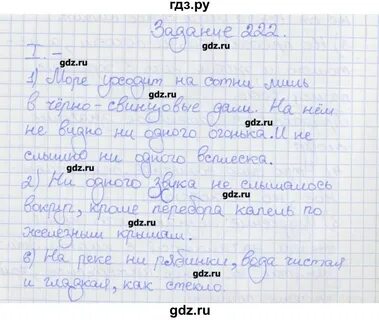 гдз.ру
Задание 222.
I. -
1) Море уходит на сотни миль
в чёрно-свинцовые дали. На нём
не видно ни одного огонька. И не
слышно ни одного всплеска.
2) Ни одного звука не слышалось
вокруг, кроме перебора капель по
железным крышам.
в) На реке ни рябинки, вода чистая
и гладкая, как стекло.
gdz.ru
gdz.ru
gdz.ru
gdz.ru
gdz.ru
gdz.ru
gdz.ru
gdz.ru
gdz.ru
gdz.ru
gdz.ru